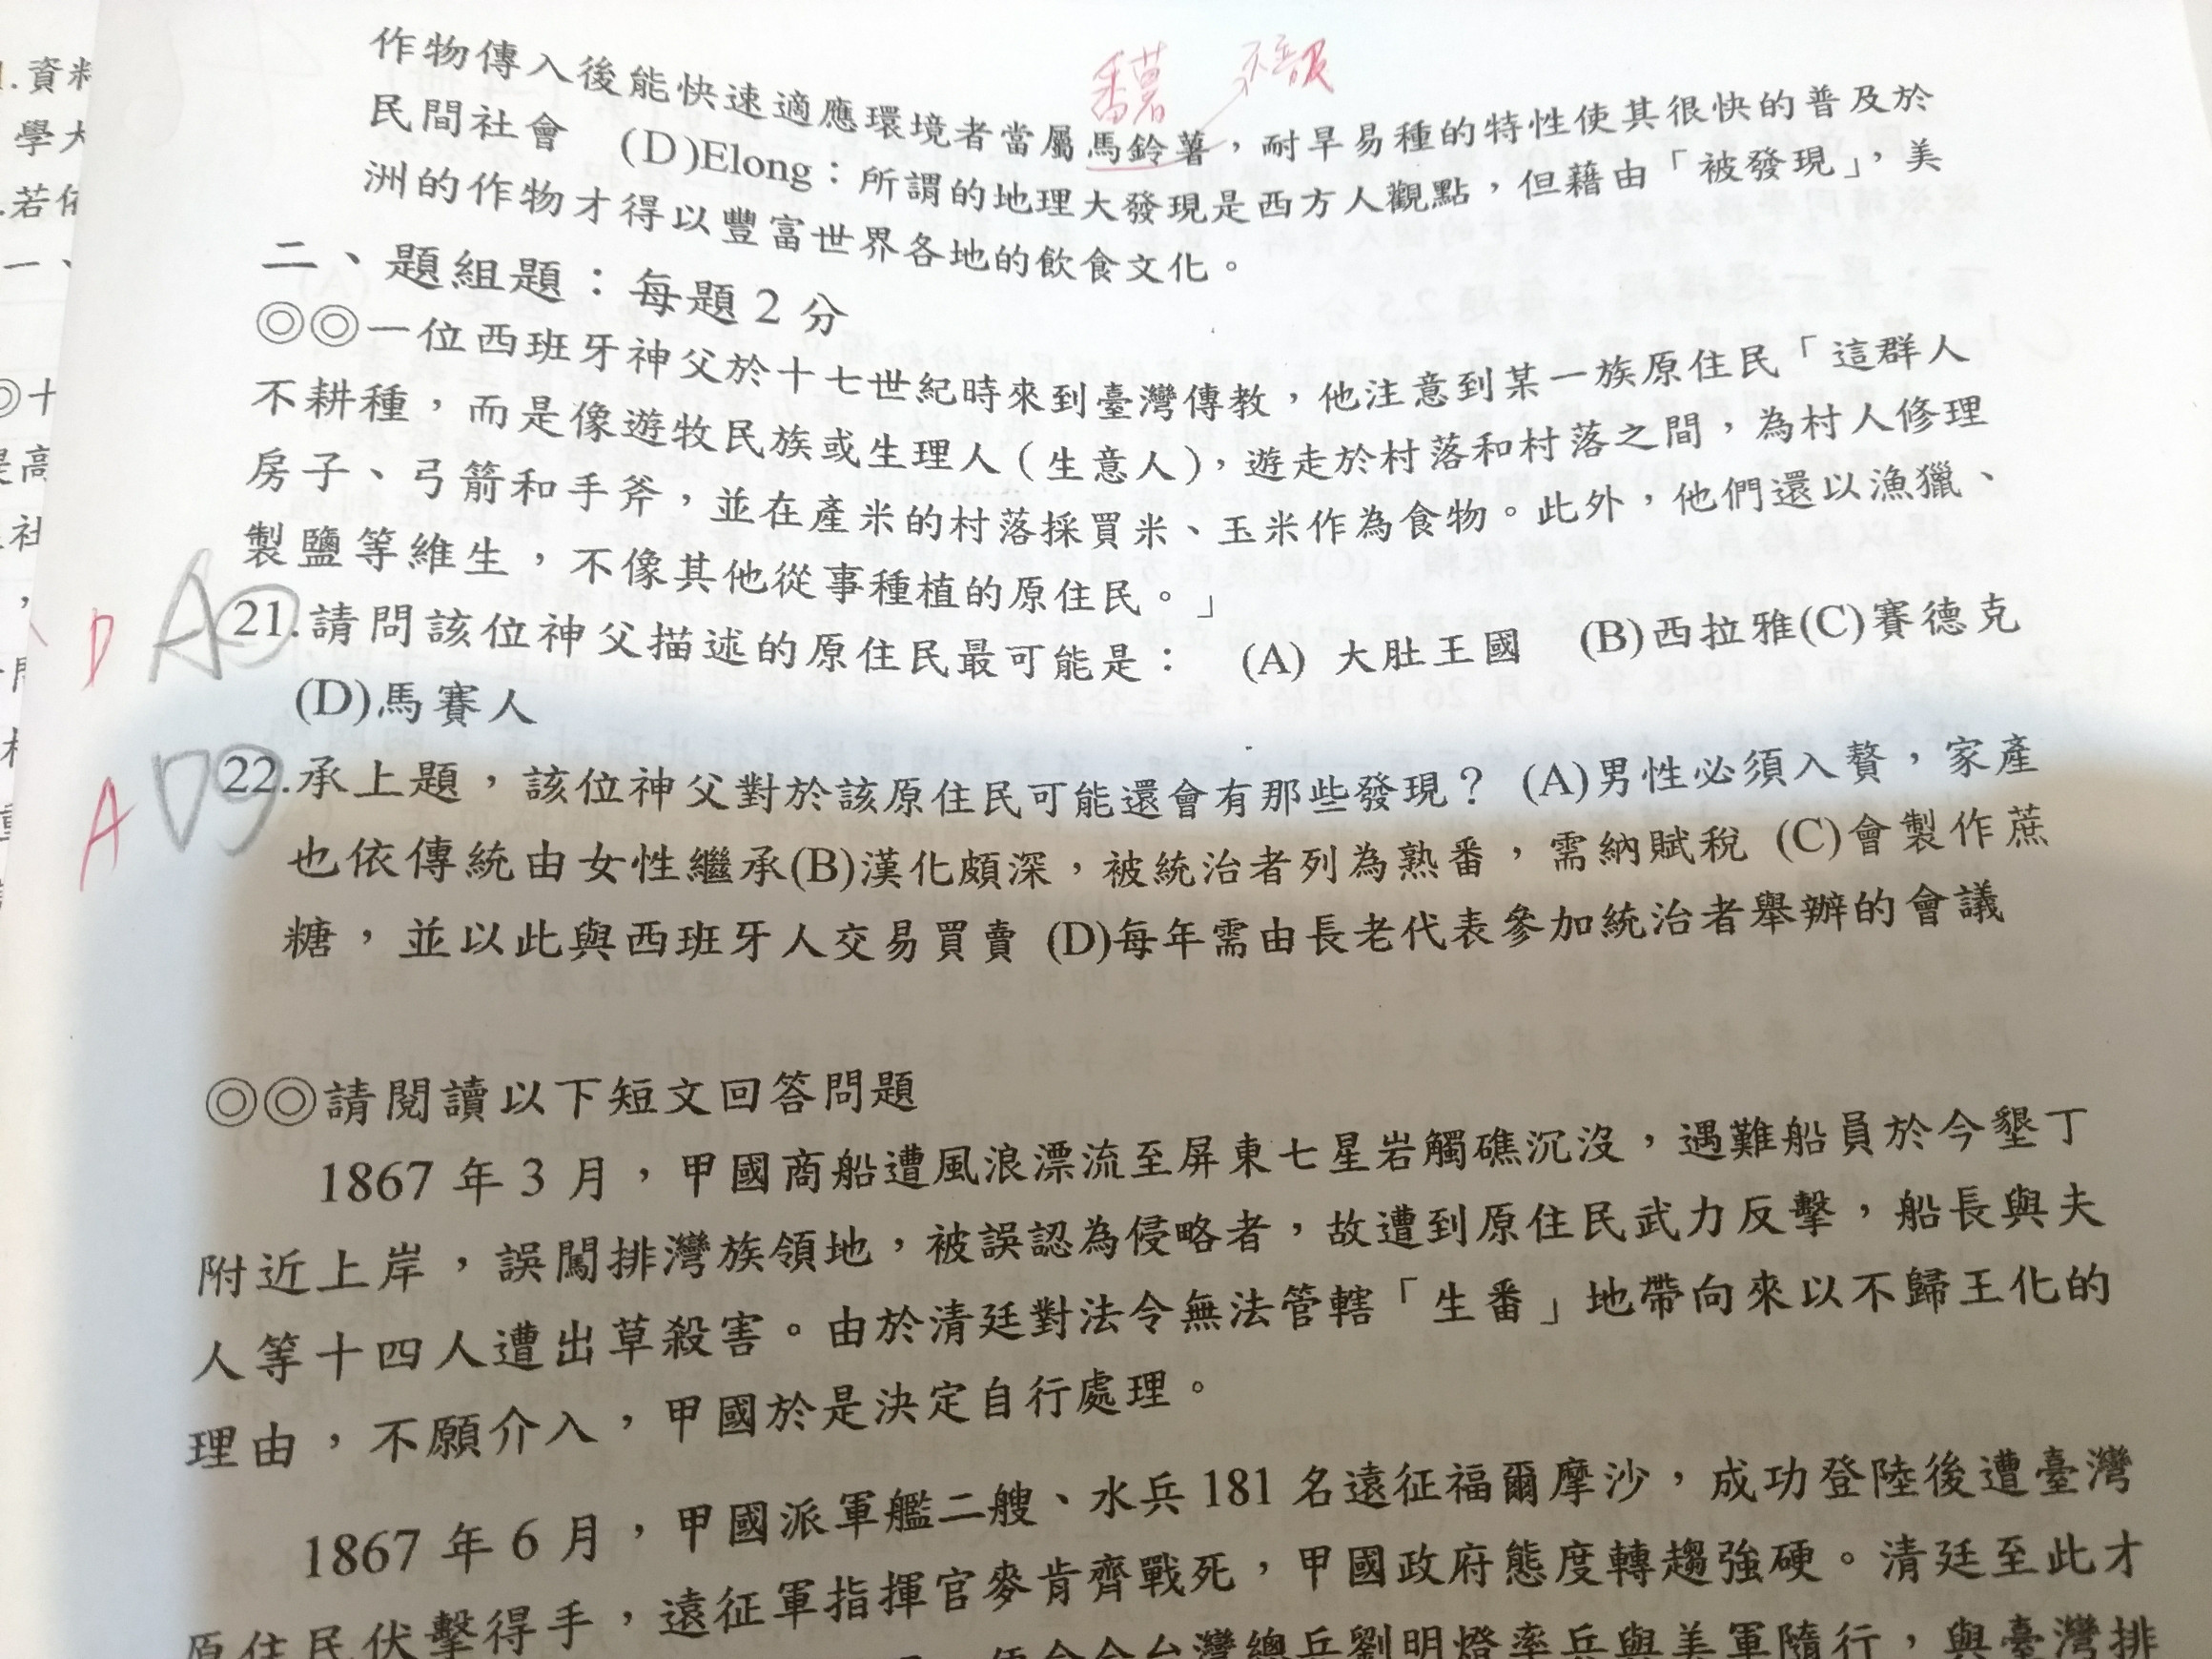 番薯
作物傳入後能快速適應環境者當屬馬鈴薯，耐旱易種的特性使其很快的普及於
民間社會　(D)Elong：所謂的地理大發現是西方人觀點，但藉由「被發現」，美
洲的作物才得以豐富世界各地的飲食文化。
二、題組題：每題2分
◎◎一位西班牙神父於十七世紀時來到臺灣傳教，他注意到某一族原住民「這群人
不耕種，而是像遊牧民族或生理人（生意人），遊走於村落和村落之間，為村人修理
房子、弓箭和手斧，並在產米的村落採買米、玉米作為食物。此外，他們還以漁獵、
製鹽等維生，不像其他從事種植的原住民。」
D A 21.請問該位神父描述的原住民最可能是：　(A) 大肚王國　(B)西拉雅(C)賽德克
(D)馬賽人
A D 22.承上題，該位神父對於該原住民可能還會有那些發現？ (A)男性必須入贅，家產
也依傳統由女性繼承(B)漢化頗深，被統治者列為熟番，需納賦稅 (C)會製作蔗
糖，並以此與西班牙人交易買賣 (D)每年需由長老代表參加統治者舉辦的會議
◎◎請閱讀以下短文回答問題
1867 年 3 月，甲國商船遭風浪漂流至屏東七星岩觸礁沉沒，遇難船員於今墾丁
附近上岸，誤闖排灣族領地，被誤認為侵略者，故遭到原住民武力反擊，船長與夫
人等十四人遭出草殺害。由於清廷對法令無法管轄「生番」地帶向來以不歸王化的
理由，不願介入，甲國於是決定自行處理。
1867 年 6 月，甲國派軍艦二艘、水兵 181 名遠征福爾摩沙，成功登陸後遭臺灣
原住民伏擊得手，遠征軍指揮官麥肯齊戰死，甲國政府態度轉趨強硬。清廷至此才
台灣總兵劉明燈率兵與美軍隨行，與臺灣排